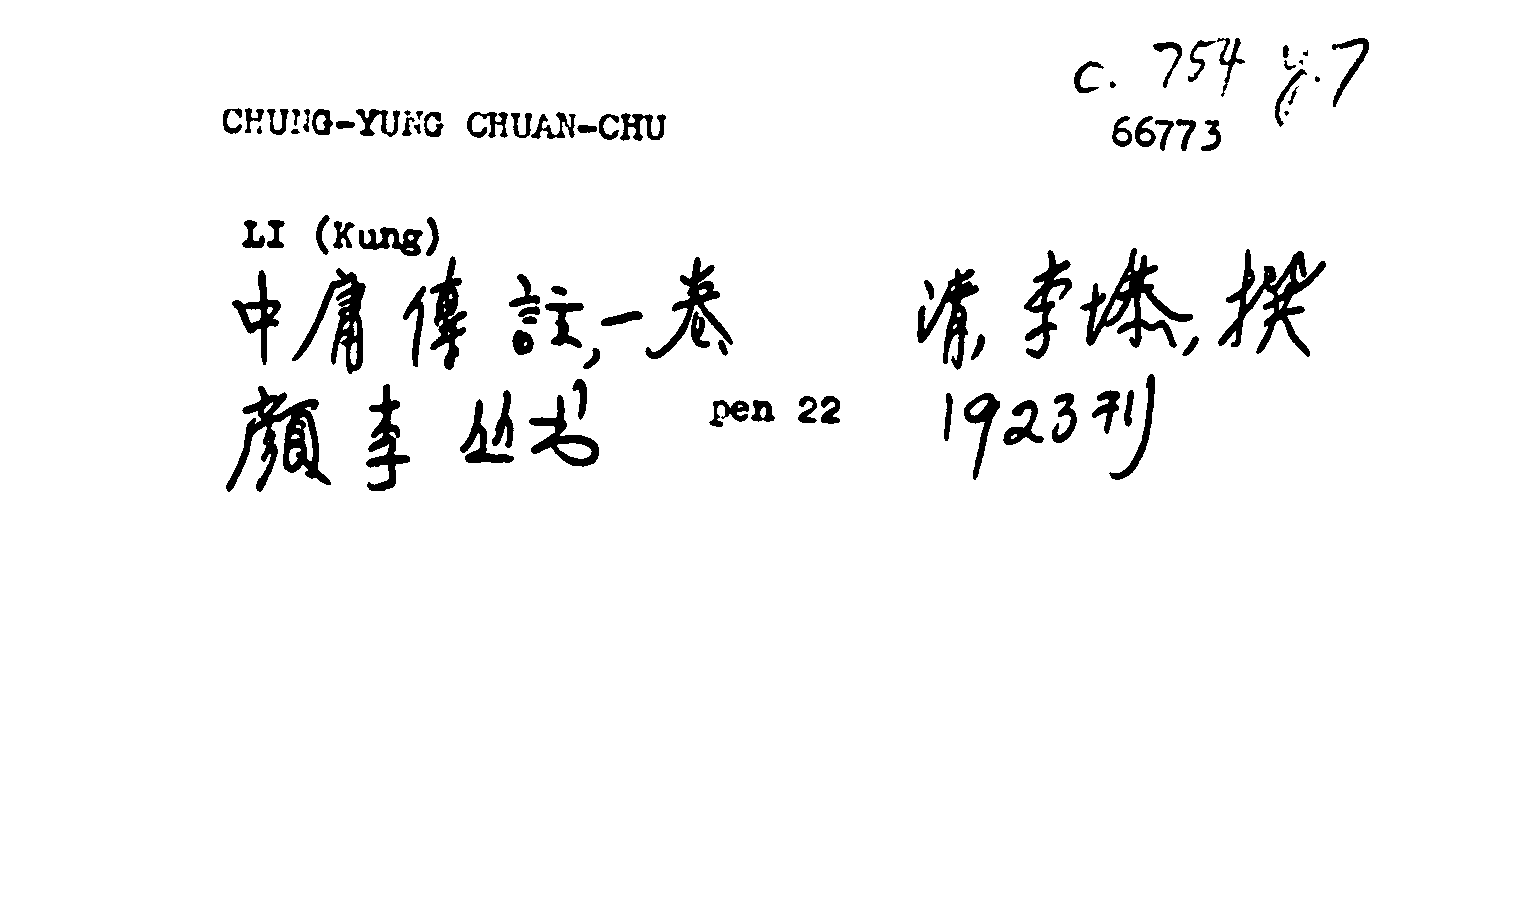 c. 754 y.7
CHUNG-YUNG CHUAN-CHU 66773
LI (Kung)
中庸傳註,一卷 清,李塨,撰
顏李丛书 pen 22 1923刊